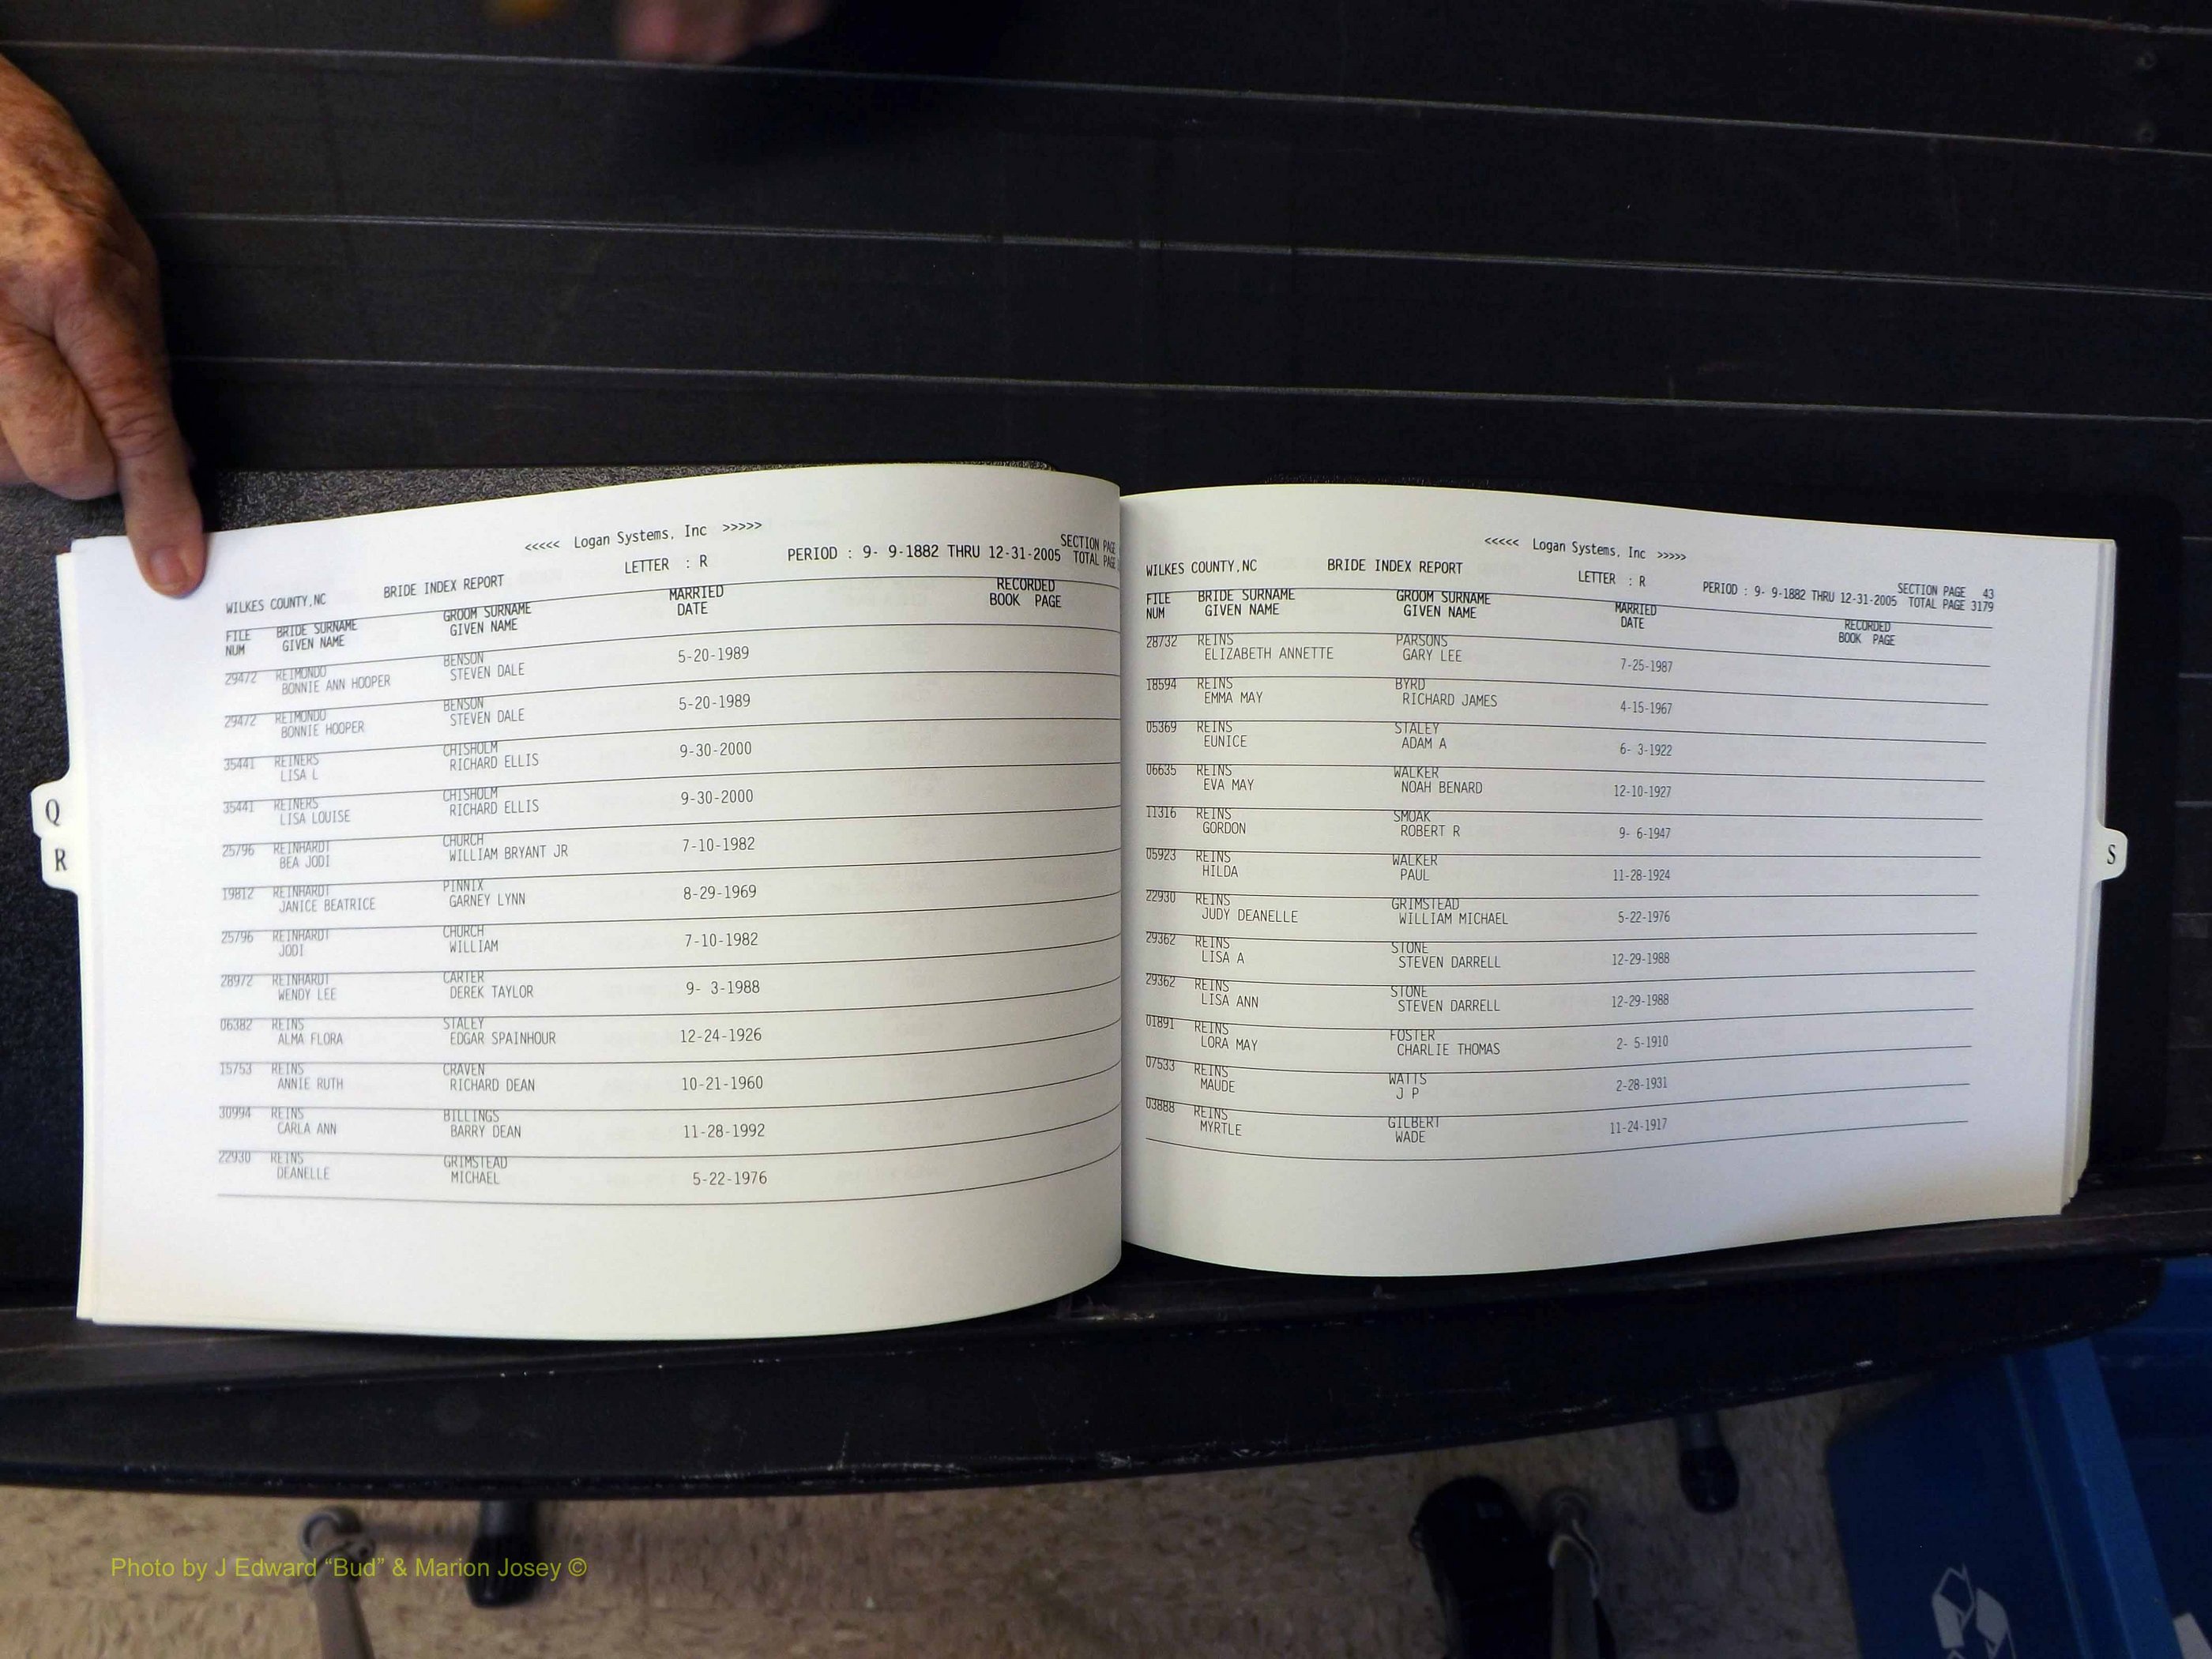 <<<<< Logan Systems, Inc >>>>>
WILKES COUNTY,NC BRIDE INDEX REPORT LETTER : R PERIOD : 9- 9-1882 THRU 12-31-2005 SECTION PAGE
TOTAL PAGE
FILE BRIDE SURNAME GROOM SURNAME MARRIED RECORDED
NUM GIVEN NAME GIVEN NAME DATE BOOK PAGE
29472 REIMONDO BENSON 5-20-1989
BONNIE ANN HOOPER STEVEN DALE
29472 REIMONDO BENSON 5-20-1989
BONNIE HOOPER STEVEN DALE
35441 REINERS CHISHOLM 9-30-2000
LISA L RICHARD ELLIS
35441 REINERS CHISHOLM 9-30-2000
LISA LOUISE RICHARD ELLIS
25796 REINHARDT CHURCH 7-10-1982
BEA JODI WILLIAM BRYANT JR
19812 REINHARDT PINNIX 8-29-1969
JANICE BEATRICE GARNEY LYNN
25796 REINHARDT CHURCH 7-10-1982
JODI WILLIAM
28972 REINHARDT CARTER 9- 3-1988
WENDY LEE DEREK TAYLOR
06382 REINS STALEY 12-24-1926
ALMA FLORA EDGAR SPAINHOUR
15753 REINS CRAVEN 10-21-1960
ANNIE RUTH RICHARD DEAN
30994 REINS BILLINGS 11-28-1992
CARLA ANN BARRY DEAN
22930 REINS GRIMSTEAD 5-22-1976
DEANELLE MICHAEL
Q
R
<<<<< Logan Systems, Inc >>>>>
WILKES COUNTY,NC BRIDE INDEX REPORT LETTER : R PERIOD : 9- 9-1882 THRU 12-31-2005 SECTION PAGE 43
TOTAL PAGE 3179
FILE BRIDE SURNAME GROOM SURNAME MARRIED RECORDED
NUM GIVEN NAME GIVEN NAME DATE BOOK PAGE
28732 REINS PARSONS 7-25-1987
ELIZABETH ANNETTE GARY LEE
18594 REINS BYRD 4-15-1967
EMMA MAY RICHARD JAMES
05369 REINS STALEY 6- 3-1922
EUNICE ADAM A
06635 REINS WALKER 12-10-1927
EVA MAY NOAH BENARD
11316 REINS SMOAK 9- 6-1947
GORDON ROBERT R
05923 REINS WALKER 11-28-1924
HILDA PAUL
22930 REINS GRIMSTEAD 5-22-1976
JUDY DEANELLE WILLIAM MICHAEL
29362 REINS STONE 12-29-1988
LISA A STEVEN DARRELL
29362 REINS STONE 12-29-1988
LISA ANN STEVEN DARRELL
01891 REINS FOSTER 2- 5-1910
LORA MAY CHARLIE THOMAS
07533 REINS WATTS 2-28-1931
MAUDE J P
03888 REINS GILBERT 11-24-1917
MYRTLE WADE
S
Photo by J Edward “Bud” & Marion Josey ©